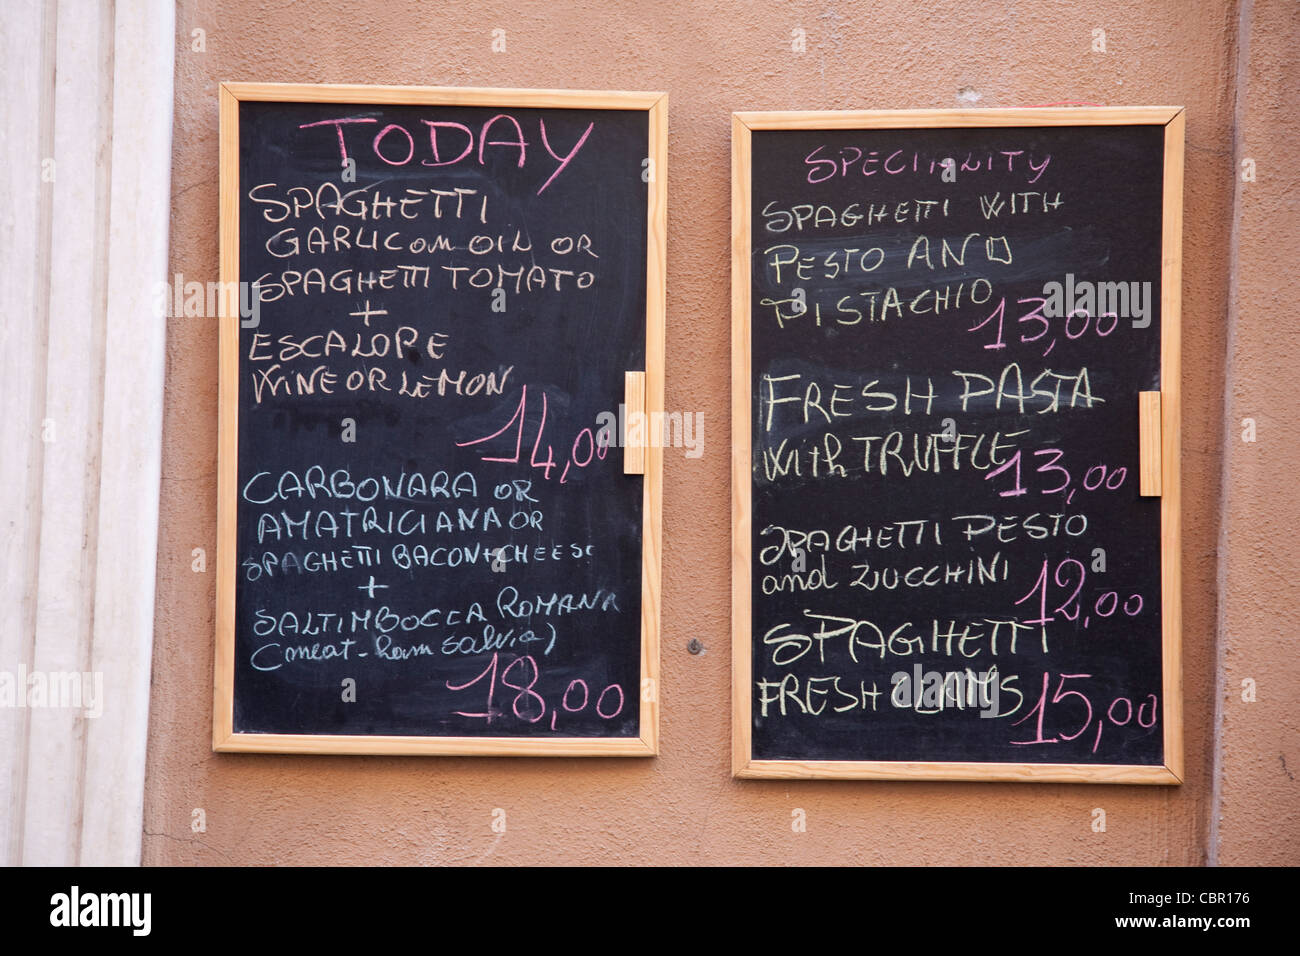 TODAY
SPAGHETTI
GARLIC om OIL OR
SPAGHETTI TOMATO
+
ESCALOPE
WINE OR LEMON
14,00
CARBONARA OR
AMATRICIANA OR
SPAGHETTI BACON+CHEESE
+
SALTIMBOCCA ROMANA
(meat-ham salvia)
18,00
SPECIALITY
SPAGHETTI WITH
PESTO AND
PISTACHIO
13,00
FRESH PASTA
with TRUFFLE
13,00
SPAGHETTI PESTO
and ZUCCHINI
12,00
SPAGHETTI
FRESH CLAMS
15,00
alamy
Image ID: CBR176
www.alamy.com